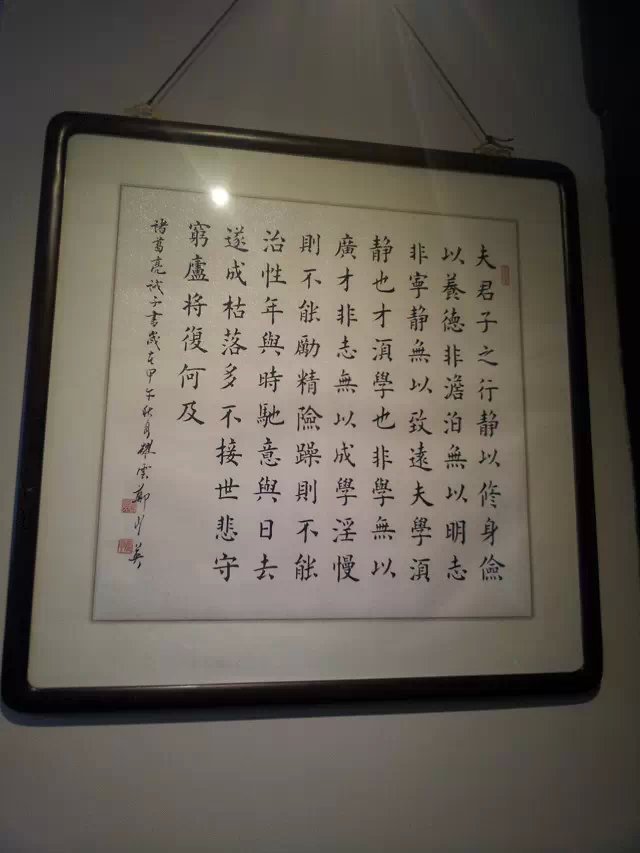 夫君子之行静以修身儉
以養德非澹泊無以明志
非寧静無以致遠夫學湏
静也才湏學也非學無以
廣才非志無以成學淫慢
則不能勵精險躁則不能
治性年與時馳意與日去
遂成枯落多不接世悲守
窮廬將復何及
諸葛亮诫子書歲在甲午秋月雲鄭英